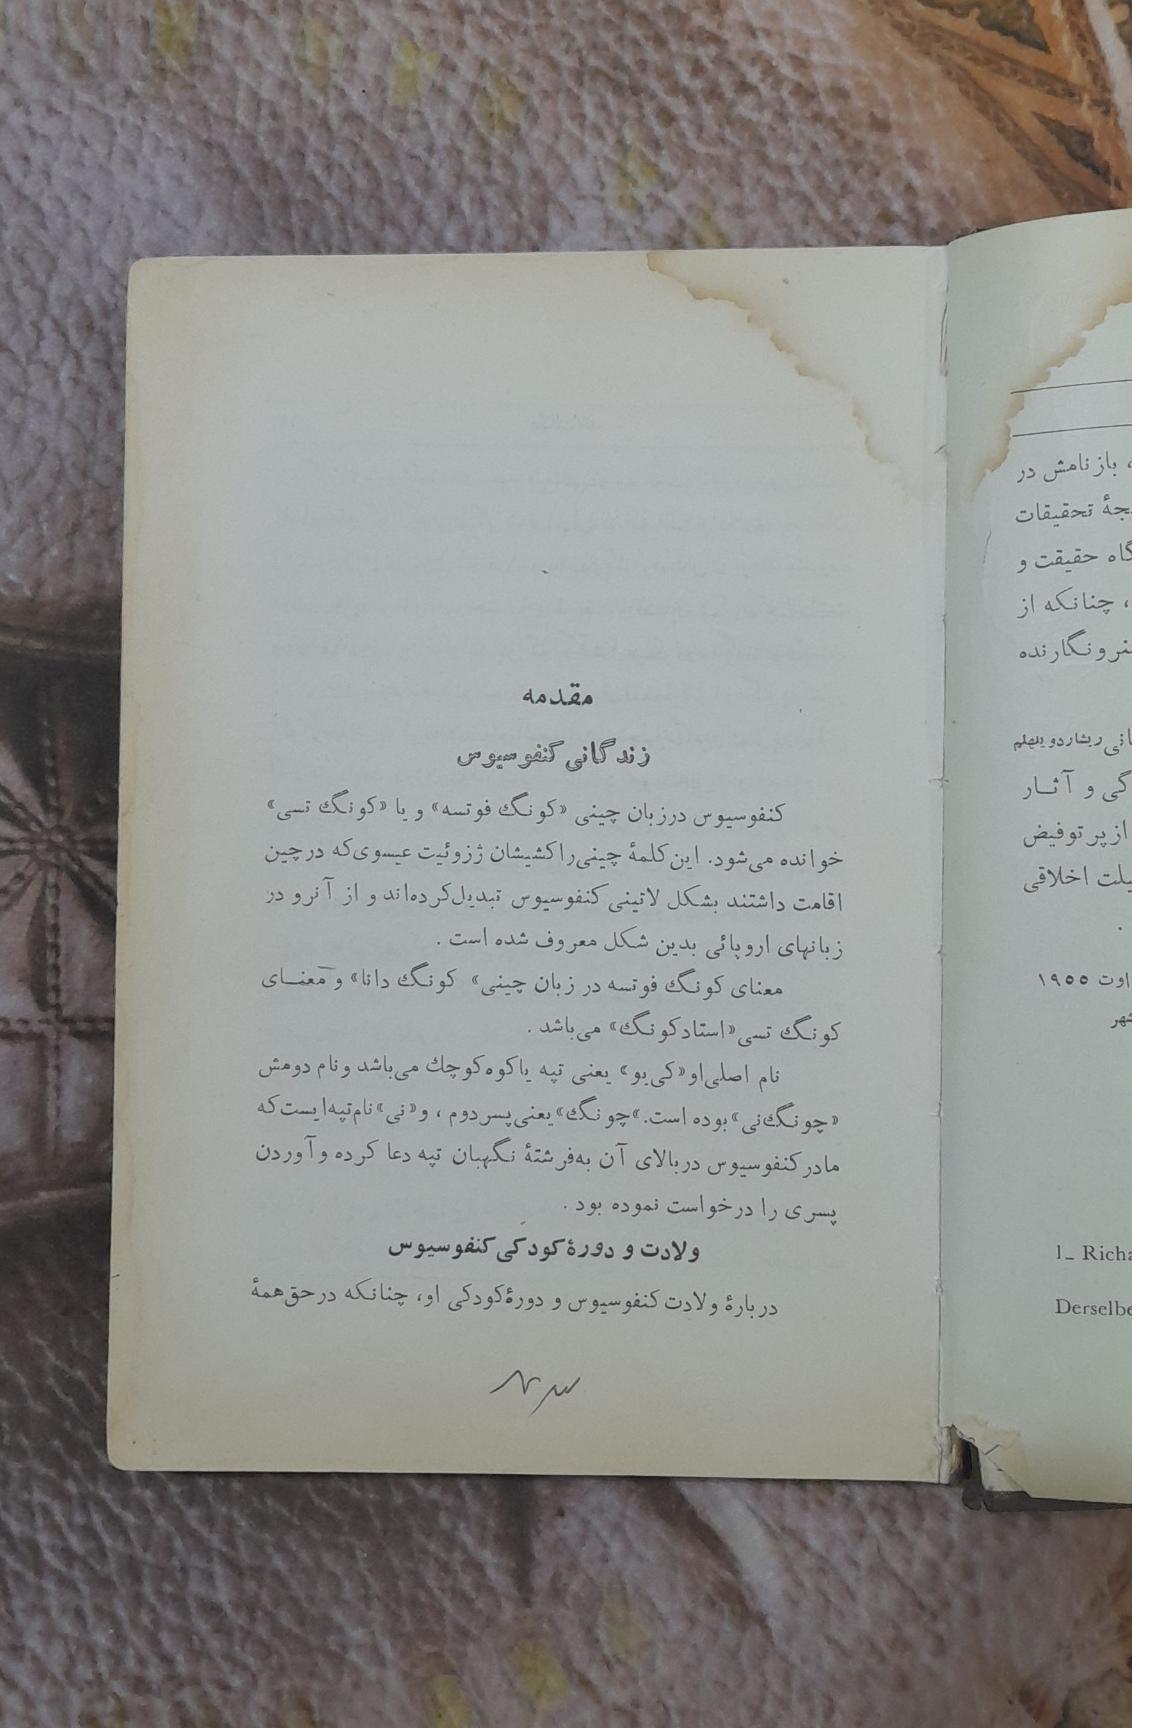 مقدمه
زندگانی کنفوسیوس
کنفوسیوس درزبان چینی «کونگ فوتسه» و یا «کونگ تسی»
خوانده می‌شود. این‌کلمهٔ چینی‌راکشیشان ژزوئیت عیسوی‌که درچین
اقامت داشتند بشکل لاتینی‌کنفوسیوس تبدیل‌کرده‌اند و از آنرو در
زبانهای اروپائی بدین شکل معروف شده است .
معنای کونگ فوتسه در زبان چینی» کونگ دانا» و معنـای
کونگ تسی«استادکونگ» می‌باشد .
نام اصلی‌او«کی‌یو» یعنی تپه یاکوه‌کوچك می‌باشد ونام دومش
«چونگ‌نی»بوده است.»چونگ»یعنی‌پسردوم ، و«نی»نام‌تپه‌ایست‌که
مادرکنفوسیوس دربالای آن به‌فرشتهٔ نگهبان تپه دعا کرده وآوردن
پسری را درخواست نموده بود .
ولادت و دورهٔ‌کودکی‌کنفوسیوس
دربارهٔ ولادت‌کنفوسیوس و دورهٔ‌کودکی او، چنانکه درحق‌همهٔ
، بازنامش در
تحقیقات
گاه حقیقت و
، چنانکه از
ونگارنده
ریشاردویلهلم
و آثـار
ازپر توفیض
اخلاقی
.
اوت ۱۹۵۵
۱_ Richa
Derselbe